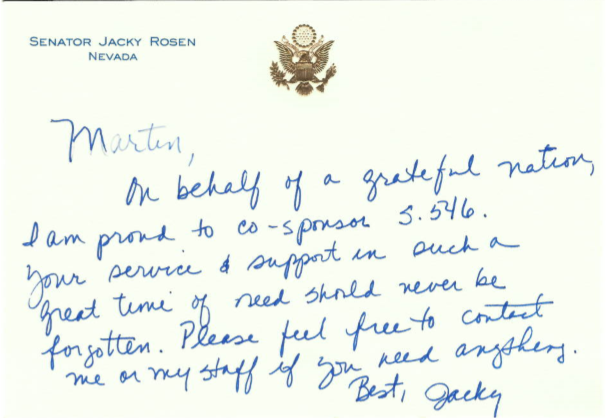 SENATOR JACKY ROSEN
NEVADA
Martin,
On behalf of a grateful nation,
I am proud to co-sponsor S.546.
Your service & support in such a
great time of need should never be
forgotten. Please feel free to contact
me or my staff if you need anything.
Best, Jacky